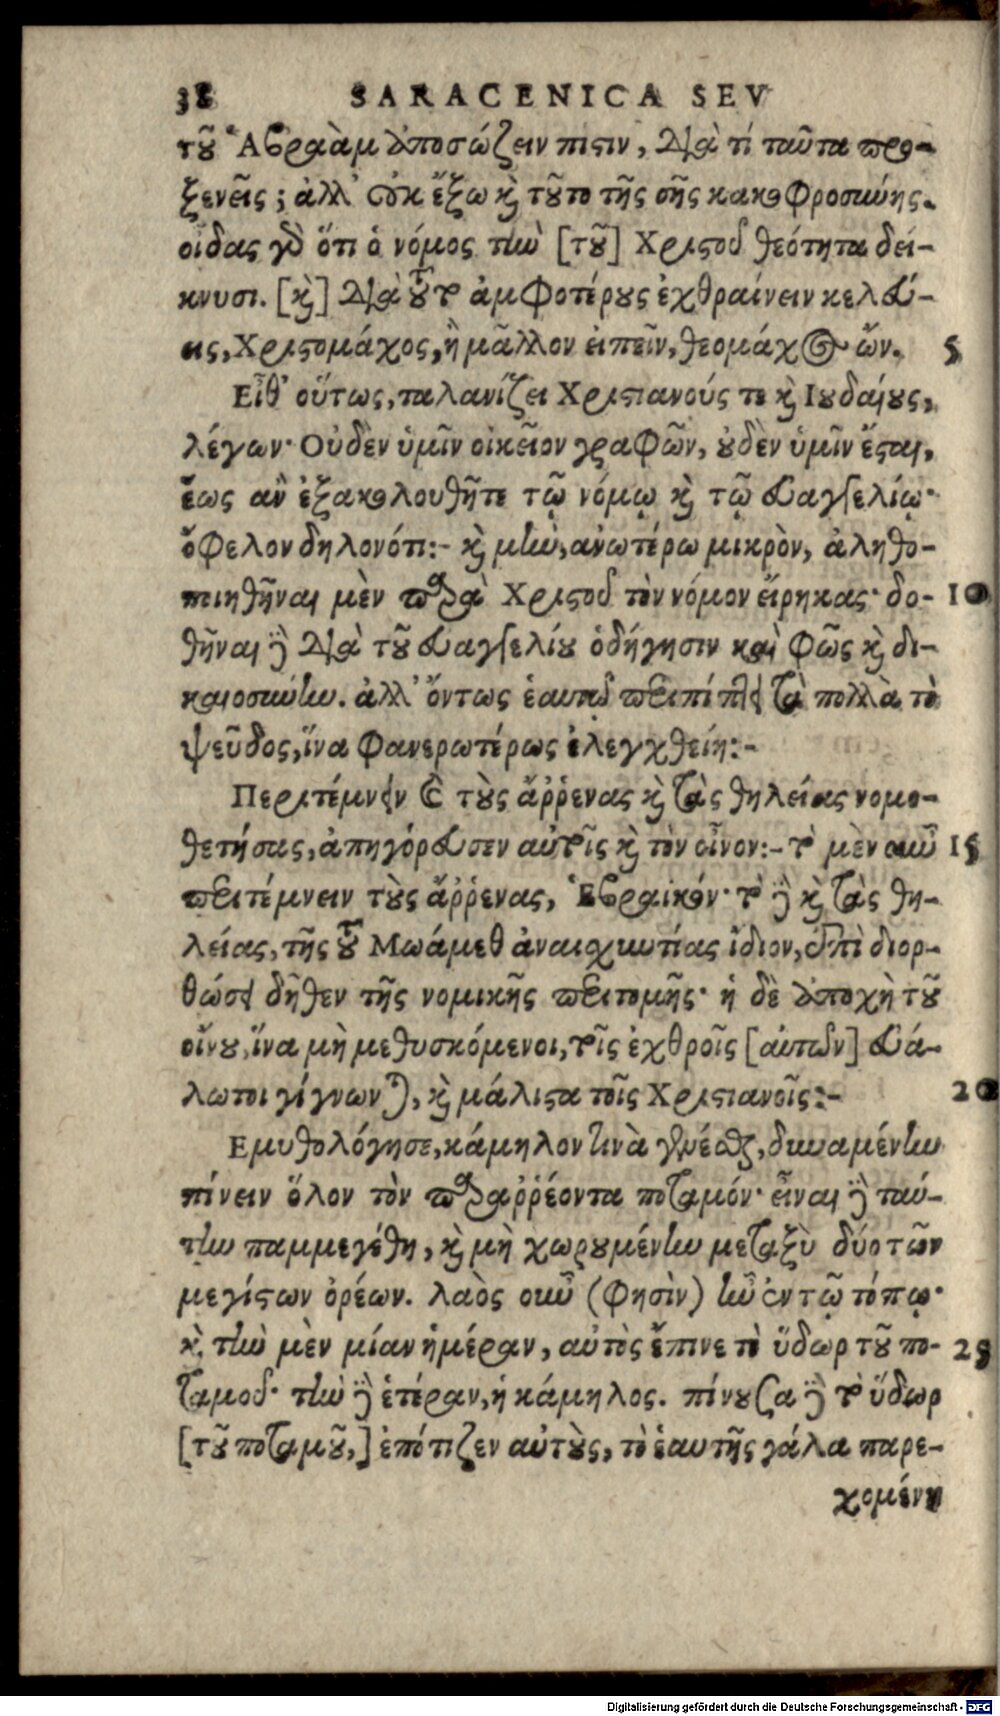 38 SARACENICA SEV
τοῦ Ἀβραὰμ ἀποσώζειν πίστιν, διὰ τί ταῦτα προ-
ξενεῖς; ἀλλ' οὐκ ἔξω καὶ τοῦτο τῆς σῆς κακοφροσύνης.
οἶδας γὰρ ὅτι ὁ νόμος τὴν [τοῦ] Χριστοῦ θεότητα δεί-
κνυσι. [καὶ] διὰ τοῦτο ἀμφοτέρους ἐχθραίνειν κελεύ-
εις, Χριστομάχος, ἢ μᾶλλον εἰπεῖν, θεομάχος ὤν. 5
Εἶθ' οὕτως, ταλανίζει Χριστιανούς τε καὶ Ιουδαίους,
λέγων· Οὐδὲν ὑμῖν οἰκεῖον γραφῶν, οὐδὲν ὑμῖν ἔσται,
ἕως ἂν ἐξακολουθῆτε τῷ νόμῳ καὶ τῷ εὐαγγελίῳ·
ὄφελον δηλονότι:- καὶ μὴν, ἀνωτέρω μικρὸν, ἀληθο-
ποιηθῆναι μὲν παρὰ Χριστοῦ τὸν νόμον εἴρηκας· δο- 10
θῆναι δὲ διὰ τοῦ εὐαγγελίου ὁδήγησιν καὶ φῶς καὶ δι-
καιοσύνην. ἀλλ' ὄντως ἑαυτῷ περιπίπτει τὰ πολλὰ τὸ
ψεῦδος, ἵνα φανερωτέρως ἐλεγχθείη:-
Περιτέμνειν καὶ τοὺς ἄῤῥενας καὶ τὰς θηλείας νομο-
θετήσας, ἀπηγόρευσεν αὐτοῖς καὶ τὸν οἶνον:- τὸ μὲν οὖν 15
περιτέμνειν τοὺς ἄῤῥενας, Ἑβραικόν· τὸ δὲ καὶ τὰς θη-
λείας, τῆς τοῦ Μωάμεθ ἀναισχυντίας ἴδιον, ἐπὶ διορ-
θώσει δῆθεν τῆς νομικῆς περιτομῆς· ἡ δὲ ἀποχὴ τοῦ
οἴνου, ἵνα μὴ μεθυσκόμενοι, τοῖς ἐχθροῖς [αὐτῶν] εὐά-
λωτοι γίγνωνται, καὶ μάλιστα τοῖς Χριστιανοῖς:- 20
Εμυθολόγησε, κάμηλον τινὰ γενέσθαι, δυναμένην
πίνειν ὅλον τὸν παραῤῥέοντα ποταμόν· εἶναι δὲ ταύ-
την παμμεγέθη, καὶ μὴ χωρουμένην μεταξὺ δύο τῶν
μεγίστων ὀρέων. λαὸς οὖν (φησὶν) ἦν ἐν τῷ τόπῳ·
καὶ τὴν μὲν μίαν ἡμέραν, αὐτὸς ἔπινε τὸ ὕδωρ τοῦ πο- 25
ταμοῦ· τὴν δὲ ἑτέραν, ἡ κάμηλος. πίνουσα δὲ τὸ ὕδωρ
[τοῦ ποταμοῦ,] ἐπότιζεν αὐτοὺς, τὸ ἑαυτῆς γάλα παρε-
χομένη
Digitalisierung gefördert durch die Deutsche Forschungsgemeinschaft - DFG